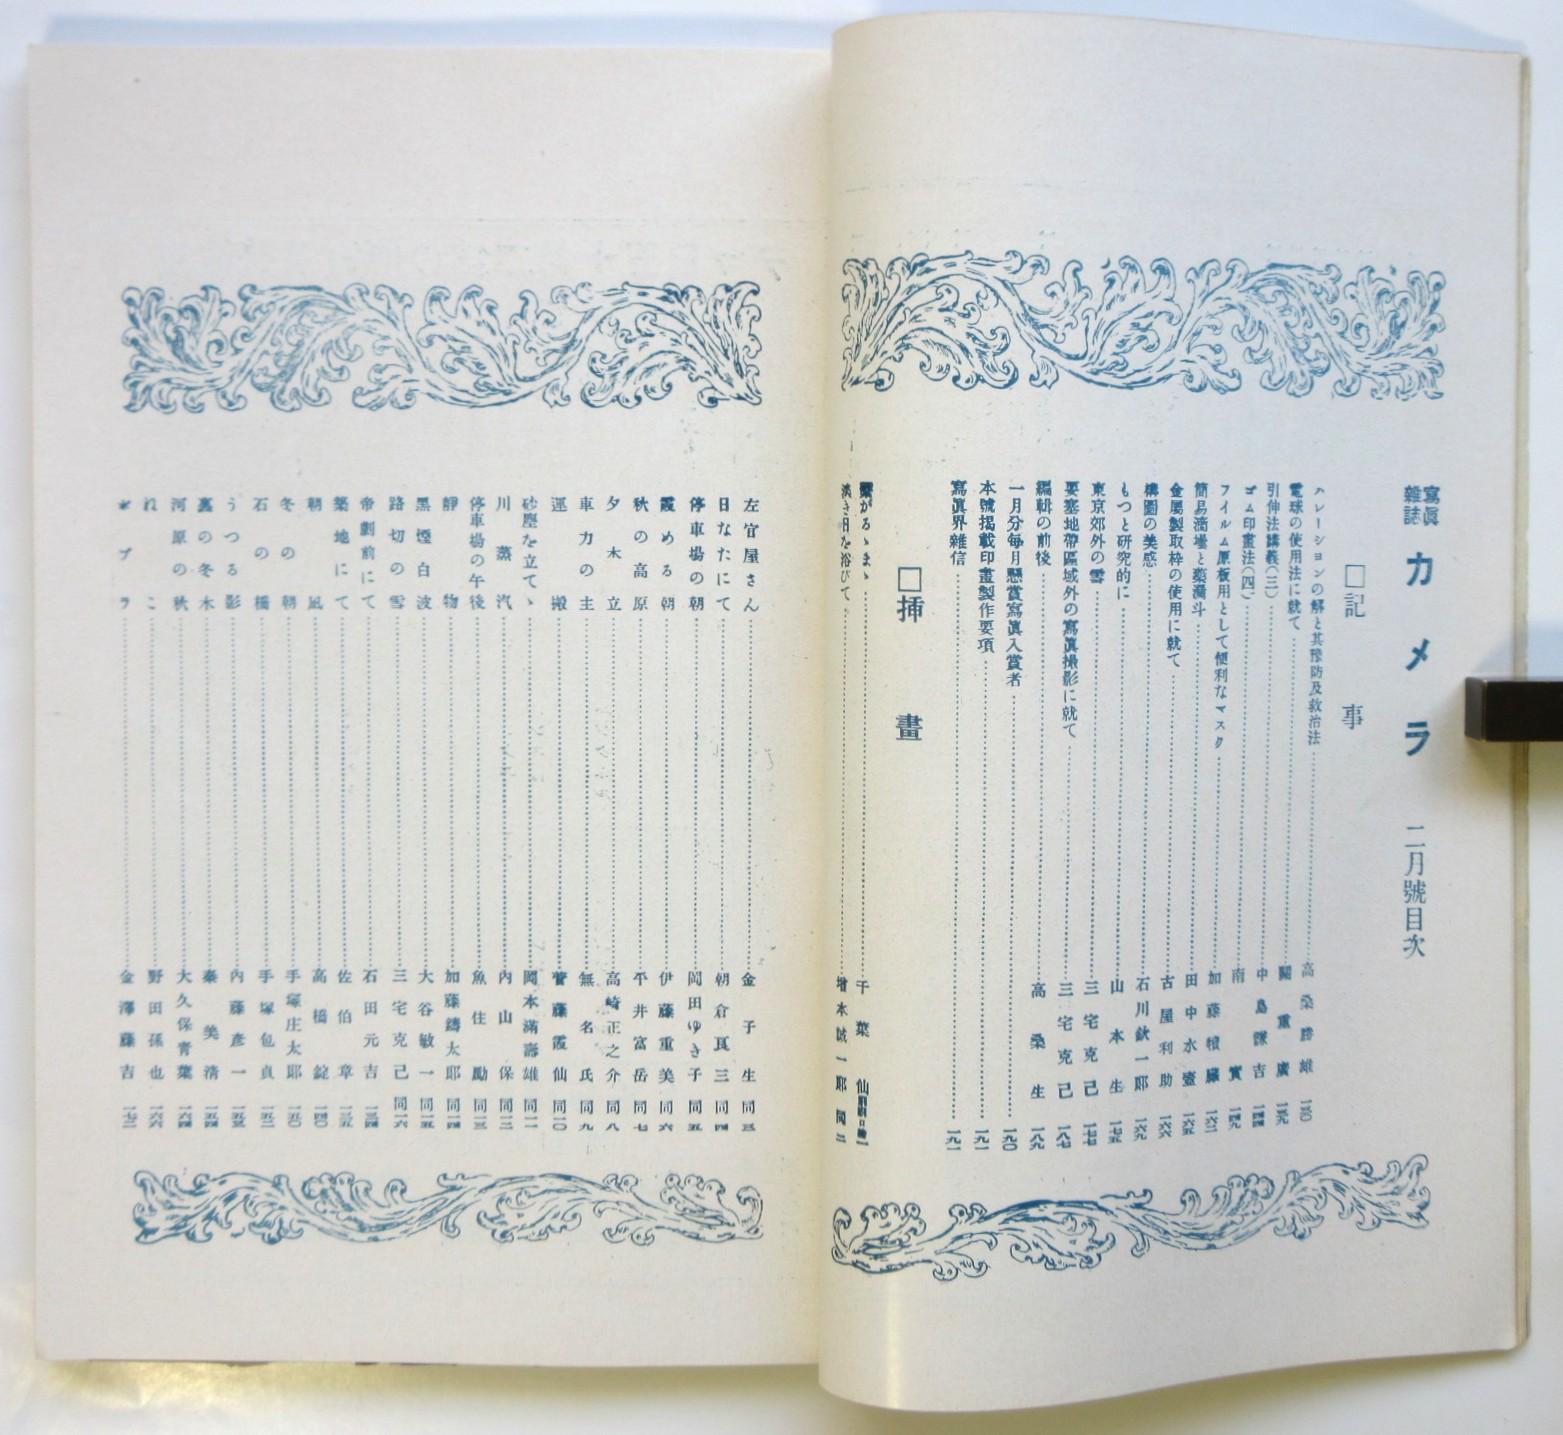 寫眞雜誌 カメラ 二月號目次
□記事
ハレーションの解と其豫防及救治法 高桑勝雄 一三〇
電球の使用法に就て 關重廣 一三九
引伸法講義(三) 中島謙吉 一四四
ゴム印畫法(四) 南實 一四九
フイルム原板用として便利なマスク 加藤積 一六二
簡易滴場と藥漏斗 田中水 一六五
金屬製取枠の使用に就て 古屋利助 一六六
構圖の美感 石川欽一郎 一六九
もつと研究的に 山本生 一七五
東京郊外の雪 三宅克己 一七七
要塞地帶區域外の寫眞撮影に就て 三宅克己 一八七
編輯の前後 高桑生 一八九
一月分毎月懸賞寫眞入賞者 一九〇
本號揭載印畫製作要項 一九一
寫眞界雜信 一九一
□挿畫
がるゝまゝ 千葉仙 一
淡き日を浴びて 增本誠一郎 同二
左官屋さん 金子生 同三
日なたにて 朝倉亙三 同四
停車場の朝 岡田ゆき子 同五
霞める朝 伊藤重美 同六
秋の高原 平井富岳 同七
夕木立 高崎正之介 同八
車力の主 無名氏 同九
運搬 菅藤霞仙 同一〇
砂塵を立てゝ 岡本滿壽雄 同一一
川蒸汽 內山保 同一二
停車場の午後 魚住勵 同一三
靜物 加藤鑄太郎 同一四
黑煙白波 大谷敏一 同一五
路切の雪 三宅克己 同一六
帝劇前にて 石田元吉 一三四
築地にて 佐伯章 一三五
朝凪 高橋錠 一四〇
冬の朝 手塚庄太郎 一五〇
石の橋 手塚包貞 一五二
うつる影 內藤彥一 一五三
裏の冬木 秦美淸 一五四
河原の秋 大久保靑葉 一六四
れこ 野田孫也 一六六
ポプラ 金澤藤吉 一七二